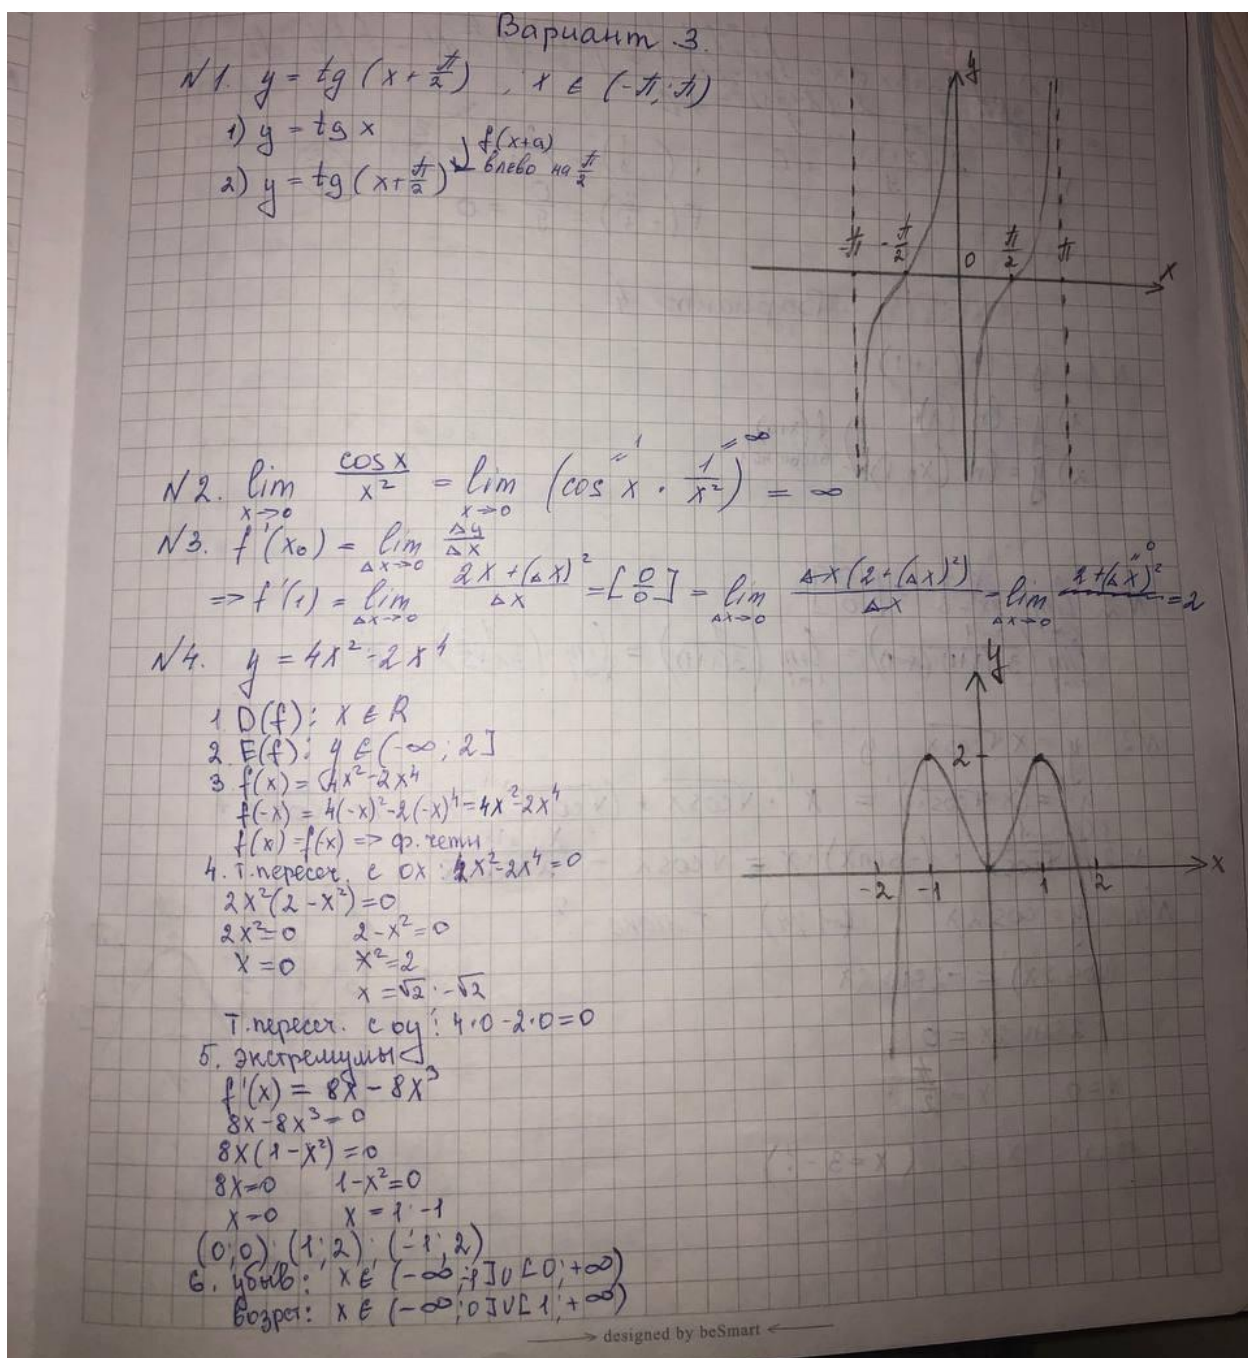 Вариант 3.
N1. y = tg (x + π/2) , x ∈ (-π; π)
1) y = tg x
f(x+a)
влево на π/2
2) y = tg (x + π/2)
y
-π -π/2 0 π/2 π x
N2. lim x→0 cos x / x² = lim x→0 (cos x · 1/x²) = ∞
= 1 = ∞
N3. f'(x₀) = lim Δx→0 Δy/Δx
=> f'(1) = lim Δx→0 2x+(Δx)²/Δx = [0/0] = lim Δx→0 Δx(2+(Δx)²)/Δx = lim Δx→0 2+(Δx)² = 2
= 0
N4. y = 4x² - 2x⁴
1 D(f): x ∈ R
2. E(f): y ∈ (-∞; 2]
3 f(x) = 4x² - 2x⁴
f(-x) = 4(-x)² - 2(-x)⁴ = 4x² - 2x⁴
f(x) = f(-x) => ф. четн
4. т. пересеч. с ox: 4x² - 2x⁴ = 0
2x²(2 - x²) = 0
2x² = 0 2 - x² = 0
x = 0 x² = 2
x = √2; -√2
т. пересеч. с oy: 4·0 - 2·0 = 0
5. экстремумы
f'(x) = 8x - 8x³
8x - 8x³ = 0
8x(1 - x²) = 0
8x = 0 1 - x² = 0
x = 0 x = 1; -1
(0; 0); (1; 2); (-1; 2)
6. убыв: x ∈ (-∞; -1] ∪ [0; +∞)
возрст: x ∈ (-∞; 0] ∪ [1; +∞)
y
2
-2 -1 1 2 x
designed by beSmart